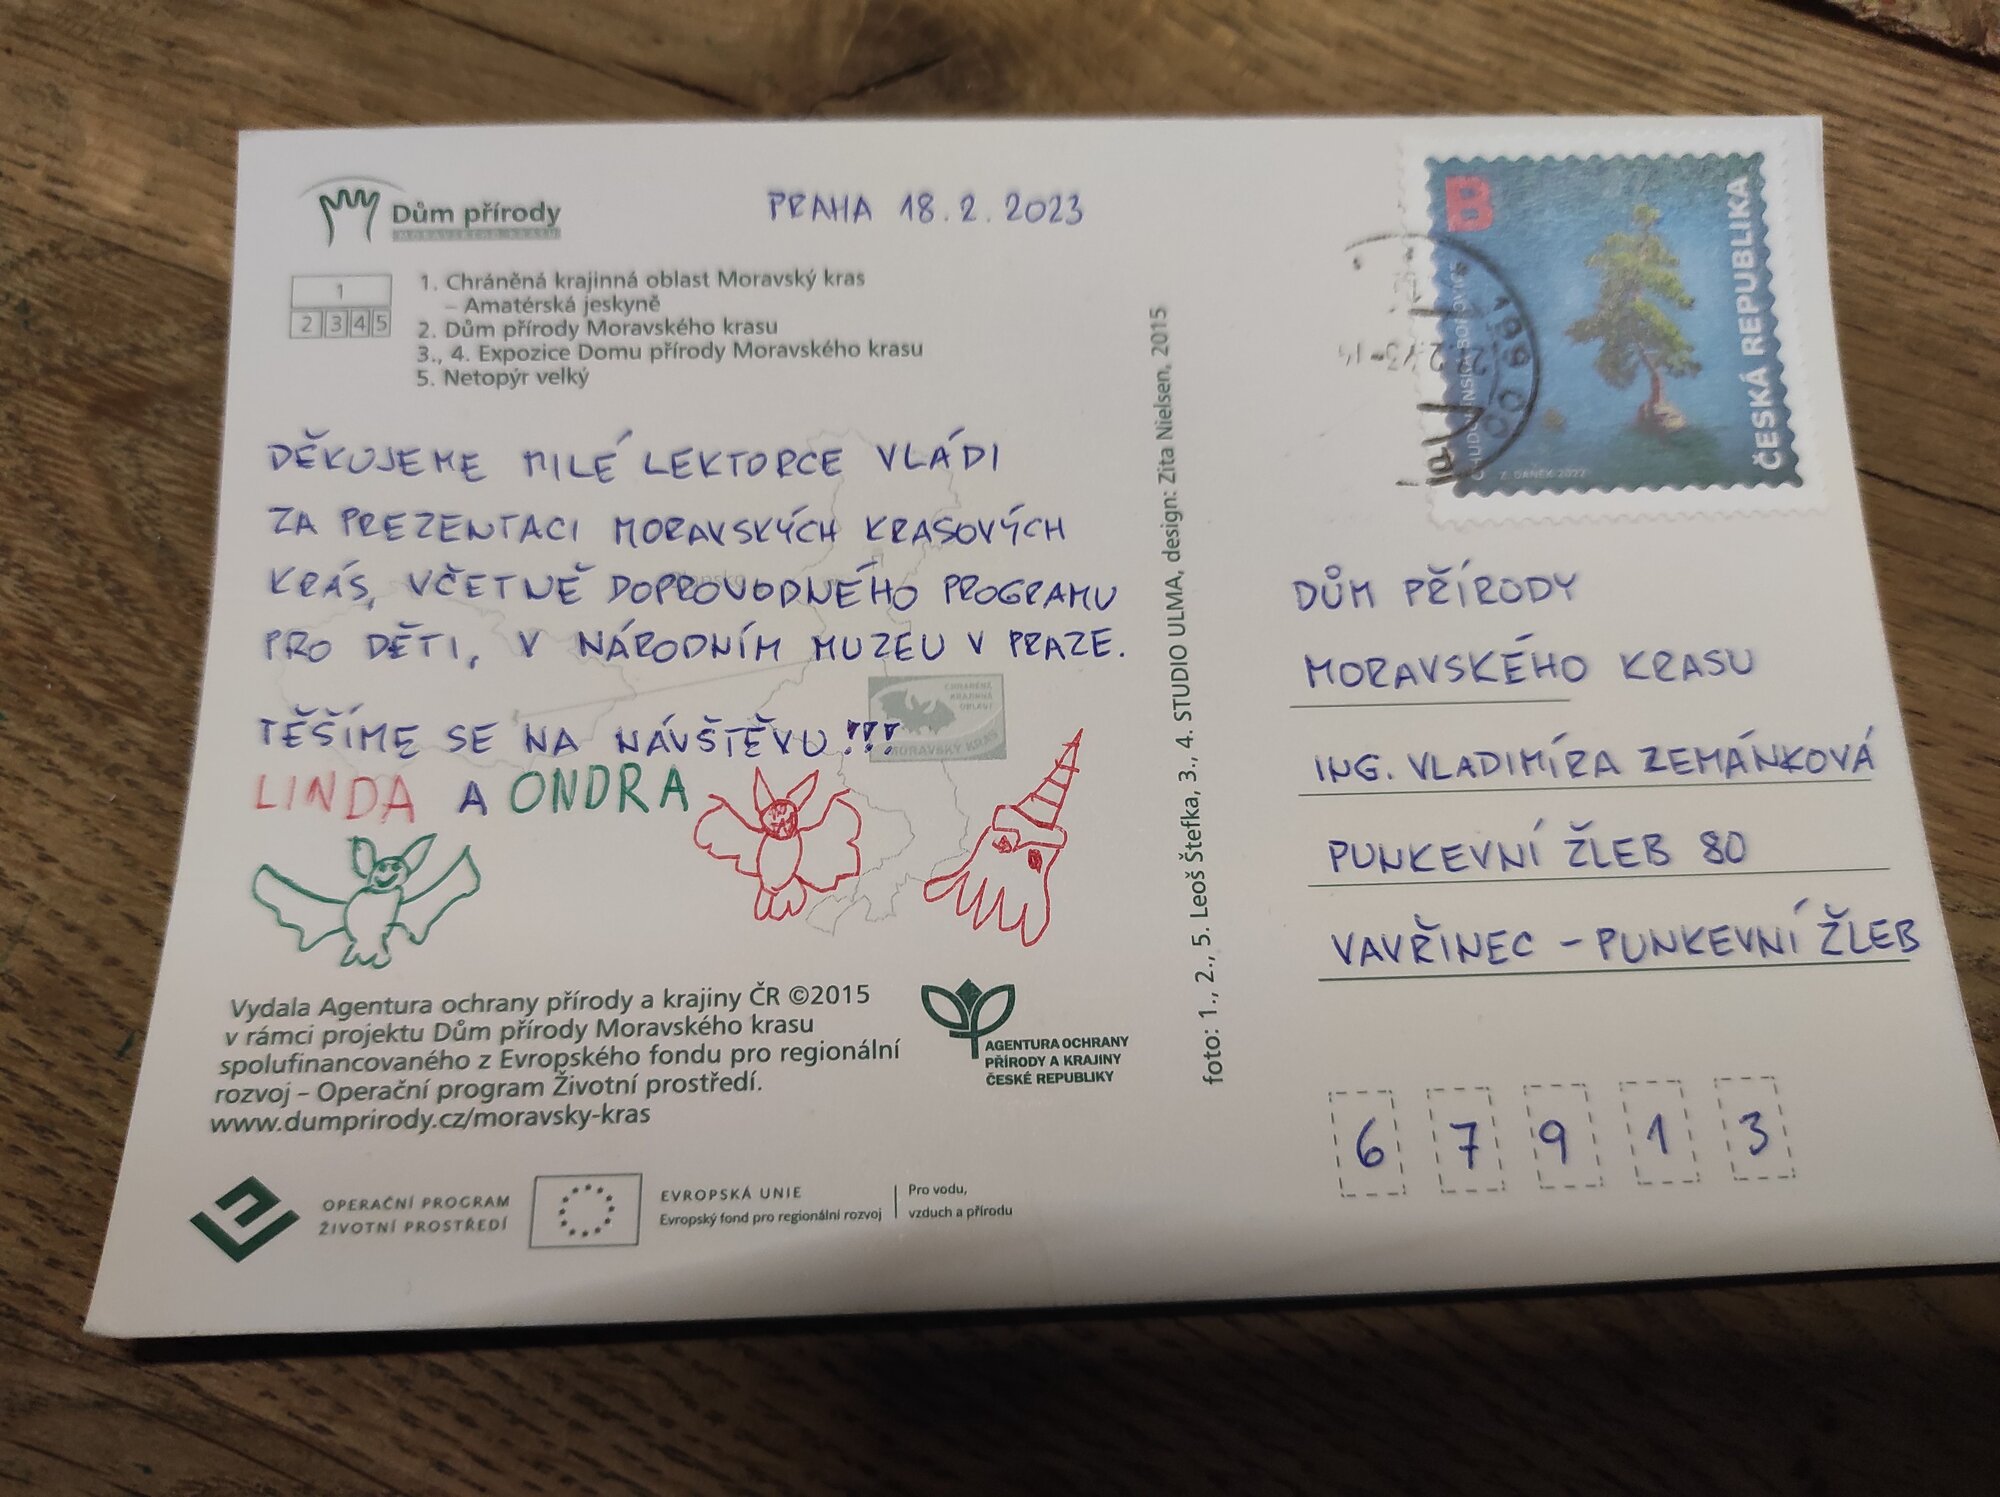 Dům přírody
MORAVSKÉHO KRASU
PRAHA 18.2.2023
1
2 3 4 5
1. Chráněná krajinná oblast Moravský kras
– Amatérská jeskyně
2. Dům přírody Moravského krasu
3., 4. Expozice Domu přírody Moravského krasu
5. Netopýr velký
DĚKUJEME MILÉ LEKTORCE VLÁDI
ZA PREZENTACI MORAVSKÝCH KRASOVÝCH
KRÁS, VČETNĚ DOPROVODNÉHO PROGRAMU
PRO DĚTI, V NÁRODNÍM MUZEU V PRAZE.
TĚŠÍME SE NA NÁVŠTĚVU!!!
LINDA A ONDRA
CHRÁNĚNÁ
KRAJINNÁ
OBLAST
MORAVSKÝ KRAS
Vydala Agentura ochrany přírody a krajiny ČR ©2015
v rámci projektu Dům přírody Moravského krasu
spolufinancovaného z Evropského fondu pro regionální
rozvoj – Operační program Životní prostředí.
www.dumprirody.cz/moravsky-kras
AGENTURA OCHRANY
PŘÍRODY A KRAJINY
ČESKÉ REPUBLIKY
OPERAČNÍ PROGRAM
ŽIVOTNÍ PROSTŘEDÍ
EVROPSKÁ UNIE
Evropský fond pro regionální rozvoj
Pro vodu,
vzduch a přírodu
foto: 1., 2., 5. Leoš Štefka, 3., 4. STUDIO ULMA, design: Zita Nielsen, 2015
B
CHUDOBÍNSKÁ BOROVICE
ČESKÁ REPUBLIKA
Z. DANĚK 2022
DŮM PŘÍRODY
MORAVSKÉHO KRASU
ING. VLADIMÍRA ZEMÁNKOVÁ
PUNKEVNÍ ŽLEB 80
VAVŘINEC – PUNKEVNÍ ŽLEB
6 7 9 1 3